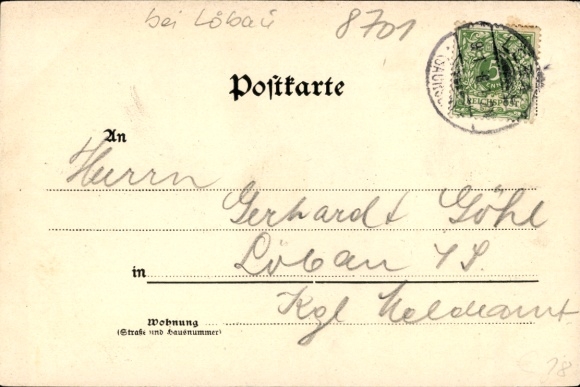 bei Löbau 8701
5
REICHSPOST
Postkarte
An
Herrn
Gerhardt Göhl
in Löbau i/S.
Kgl Meldeamt
Wohnung
(Straße und Hausnummer)
18